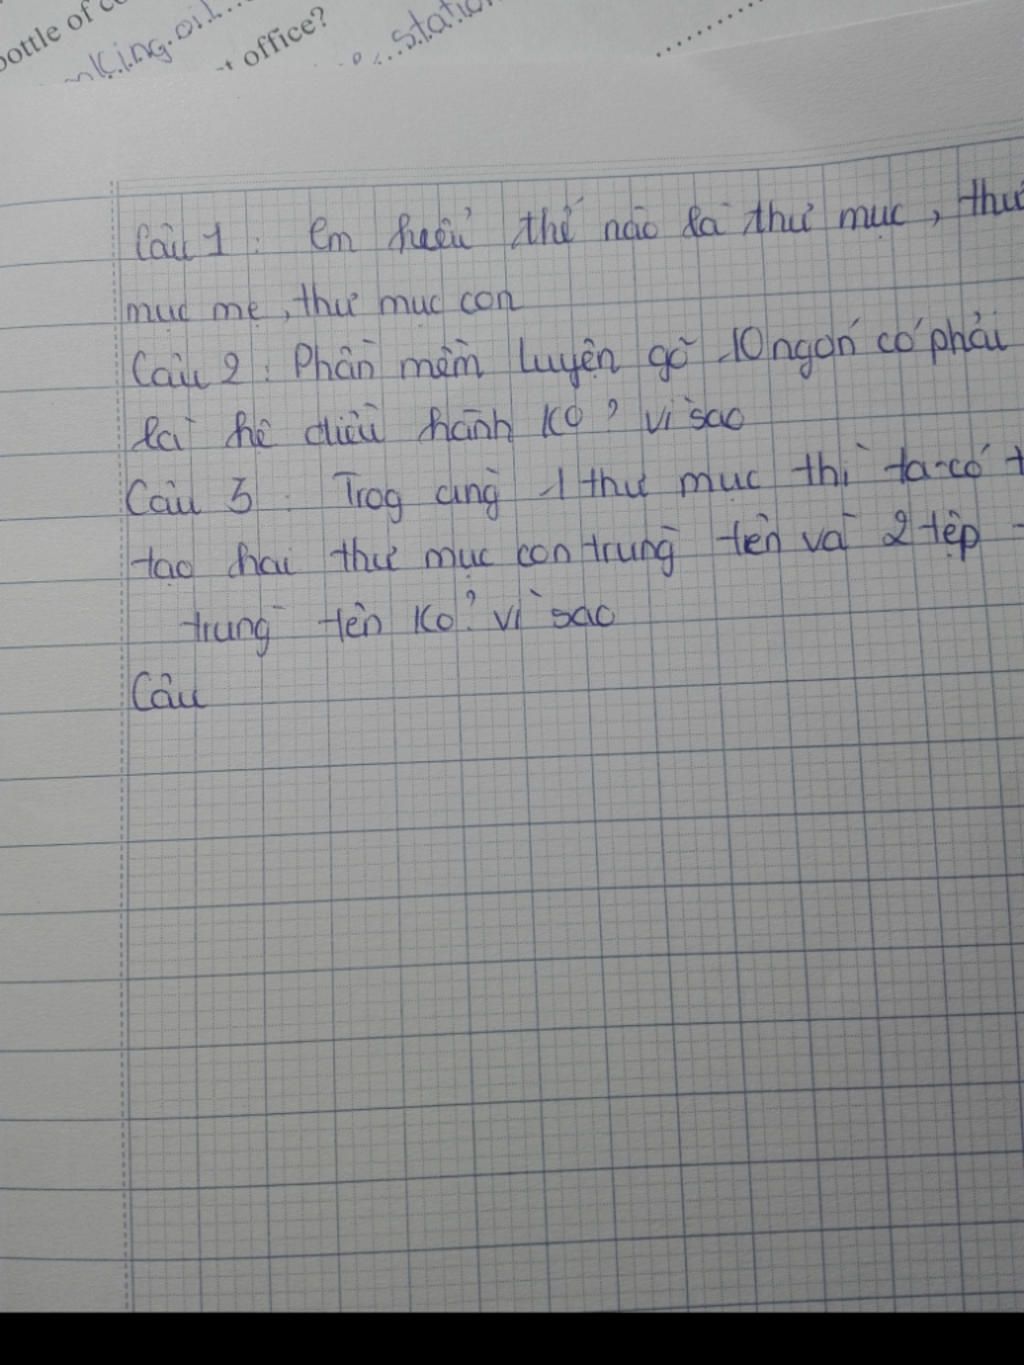 bottle of
king.oil...
office?
...statio
Câu 1 : Em hiểu thế nào là thư mục, thư
mục mẹ, thư mục con
Câu 2 : Phần mềm luyện gõ 10 ngón có phải
là hệ điều hành ko? vì sao
Câu 3 : Trog cùng 1 thư mục thì ta có t
tạo hai thư mục con trùng tên và 2 tệp
trùng tên ko? vì sao
Câu